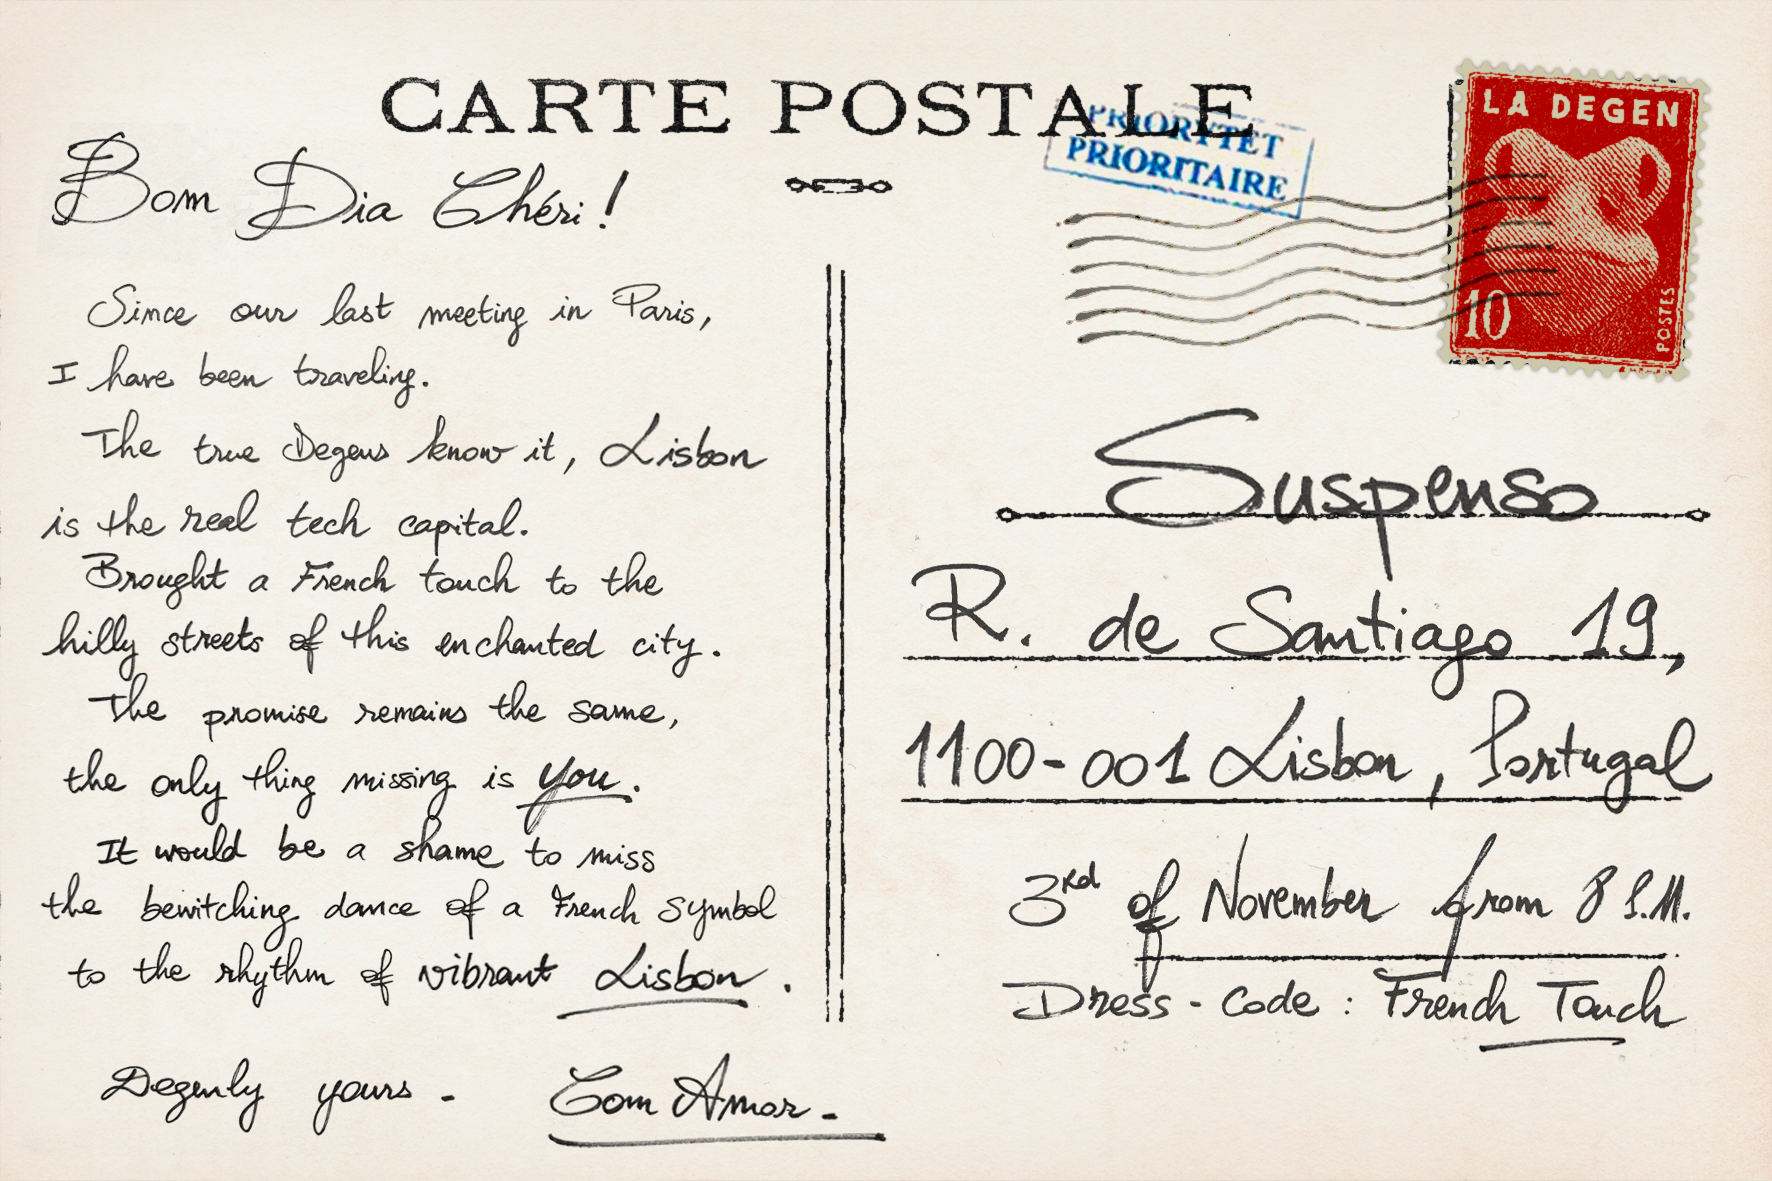 CARTE POSTALE
PRIORYTET
PRIORITAIRE
LA DEGEN
10
POSTES
Bom Dia Chéri !
Since our last meeting in Paris,
I have been traveling.
The true Degens know it, Lisbon
is the real tech capital.
Brought a French touch to the
hilly streets of this enchanted city.
The promise remains the same,
the only thing missing is you.
It would be a shame to miss
the bewitching dance of a French symbol
to the rhythm of vibrant Lisbon.
Degenly yours - Com Amor -
Suspenso
R. de Santiago 19,
1100-001 Lisbon, Portugal
3rd of November from 8 P.M.
Dress-code : French Touch